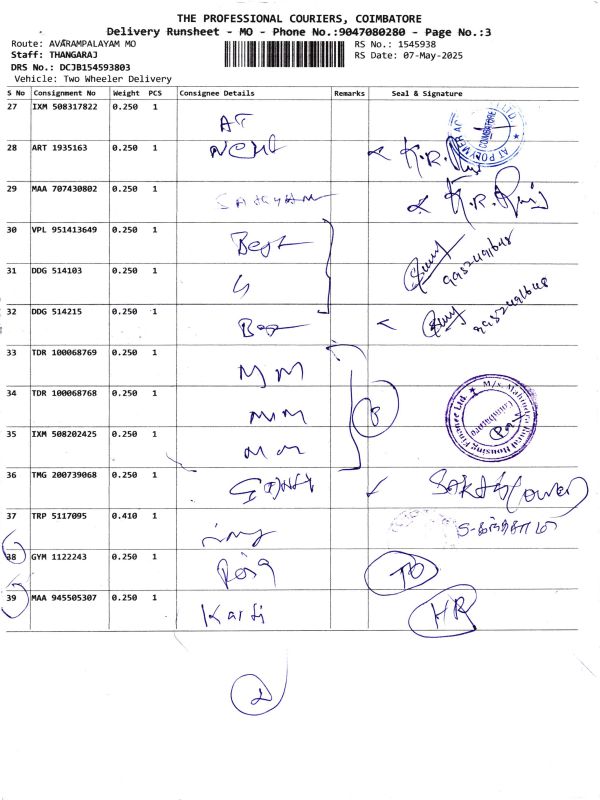 THE PROFESSIONAL COURIERS, COIMBATORE
Delivery Runsheet - MO - Phone No.:9047080280 - Page No.:3
Route: AVARAMPALAYAM MO RS No.: 1545938
Staff: THANGARAJ RS Date: 07-May-2025
DRS No.: DCJB154593803
Vehicle: Two Wheeler Delivery
S No Consignment No Weight PCS Consignee Details Remarks Seal & Signature
27 IXM 508317822 0.250 1 AT
28 ART 1935163 0.250 1
29 MAA 707430802 0.250 1
30 VPL 951413649 0.250 1 Best 9952491648
31 DDG 514103 0.250 1
32 DDG 514215 0.250 1 9952491648
33 TDR 100068769 0.250 1 MM
34 TDR 100068768 0.250 1 MM
M/s. Mahindra Rural Housing Finance Ltd.
Coimbatore
35 IXM 508202425 0.250 1 MM
36 TMG 200739068 0.250 1
37 TRP 5117095 0.410 1
38 GYM 1122243 0.250 1 TO
39 MAA 945505307 0.250 1 HR
2